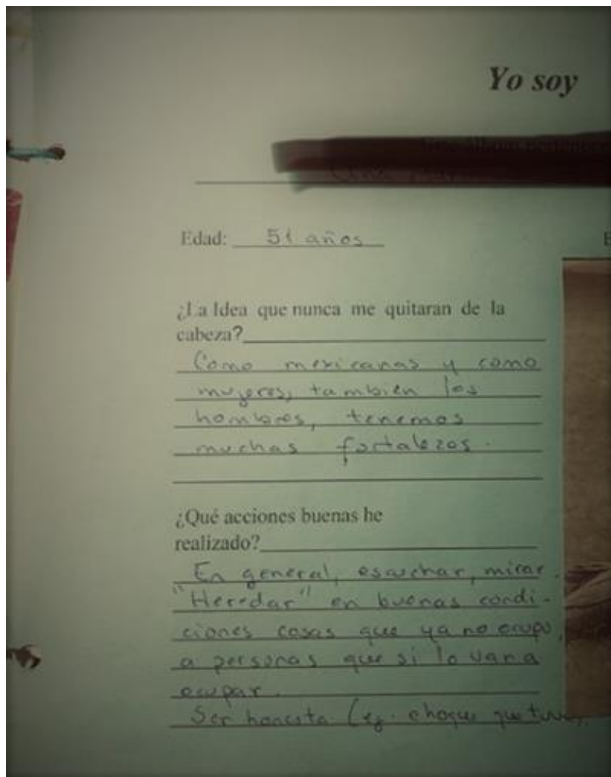 Yo soy
Edad: 51 años
E
¿La Idea que nunca me quitaran de la
cabeza?
Como mexicanas y como
mujeres, tambien los
hombres, tenemos
muchas fortalezas.
¿Qué acciones buenas he
realizado?
En general, escuchar, mirar.
"Heredar" en buenas condi-
ciones cosas que ya no ocupo,
a personas que si lo van a
ocupar.
Ser honesta. (ej. choque que tuve).